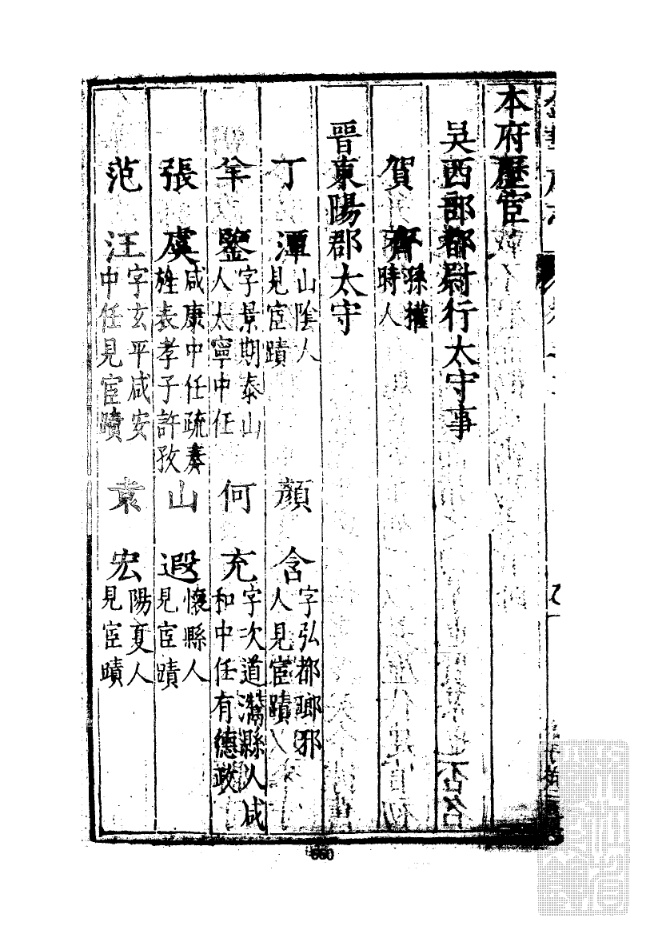 本府歷官
吳西部都尉行太守事
賀齊 孫權時人
晉東陽郡太守
丁潭 山陰人見宦蹟
顏含 字弘都瑯邪人見宦蹟
羊鑒 字景期泰山人太寧中任
何充 字次道灊縣人咸和中任有德政
張虞 咸康中任疏奏旌表孝子許孜
山遐 懷縣人見宦蹟
范汪 字玄平咸安中任見宦蹟
袁宏 陽夏人見宦蹟
560